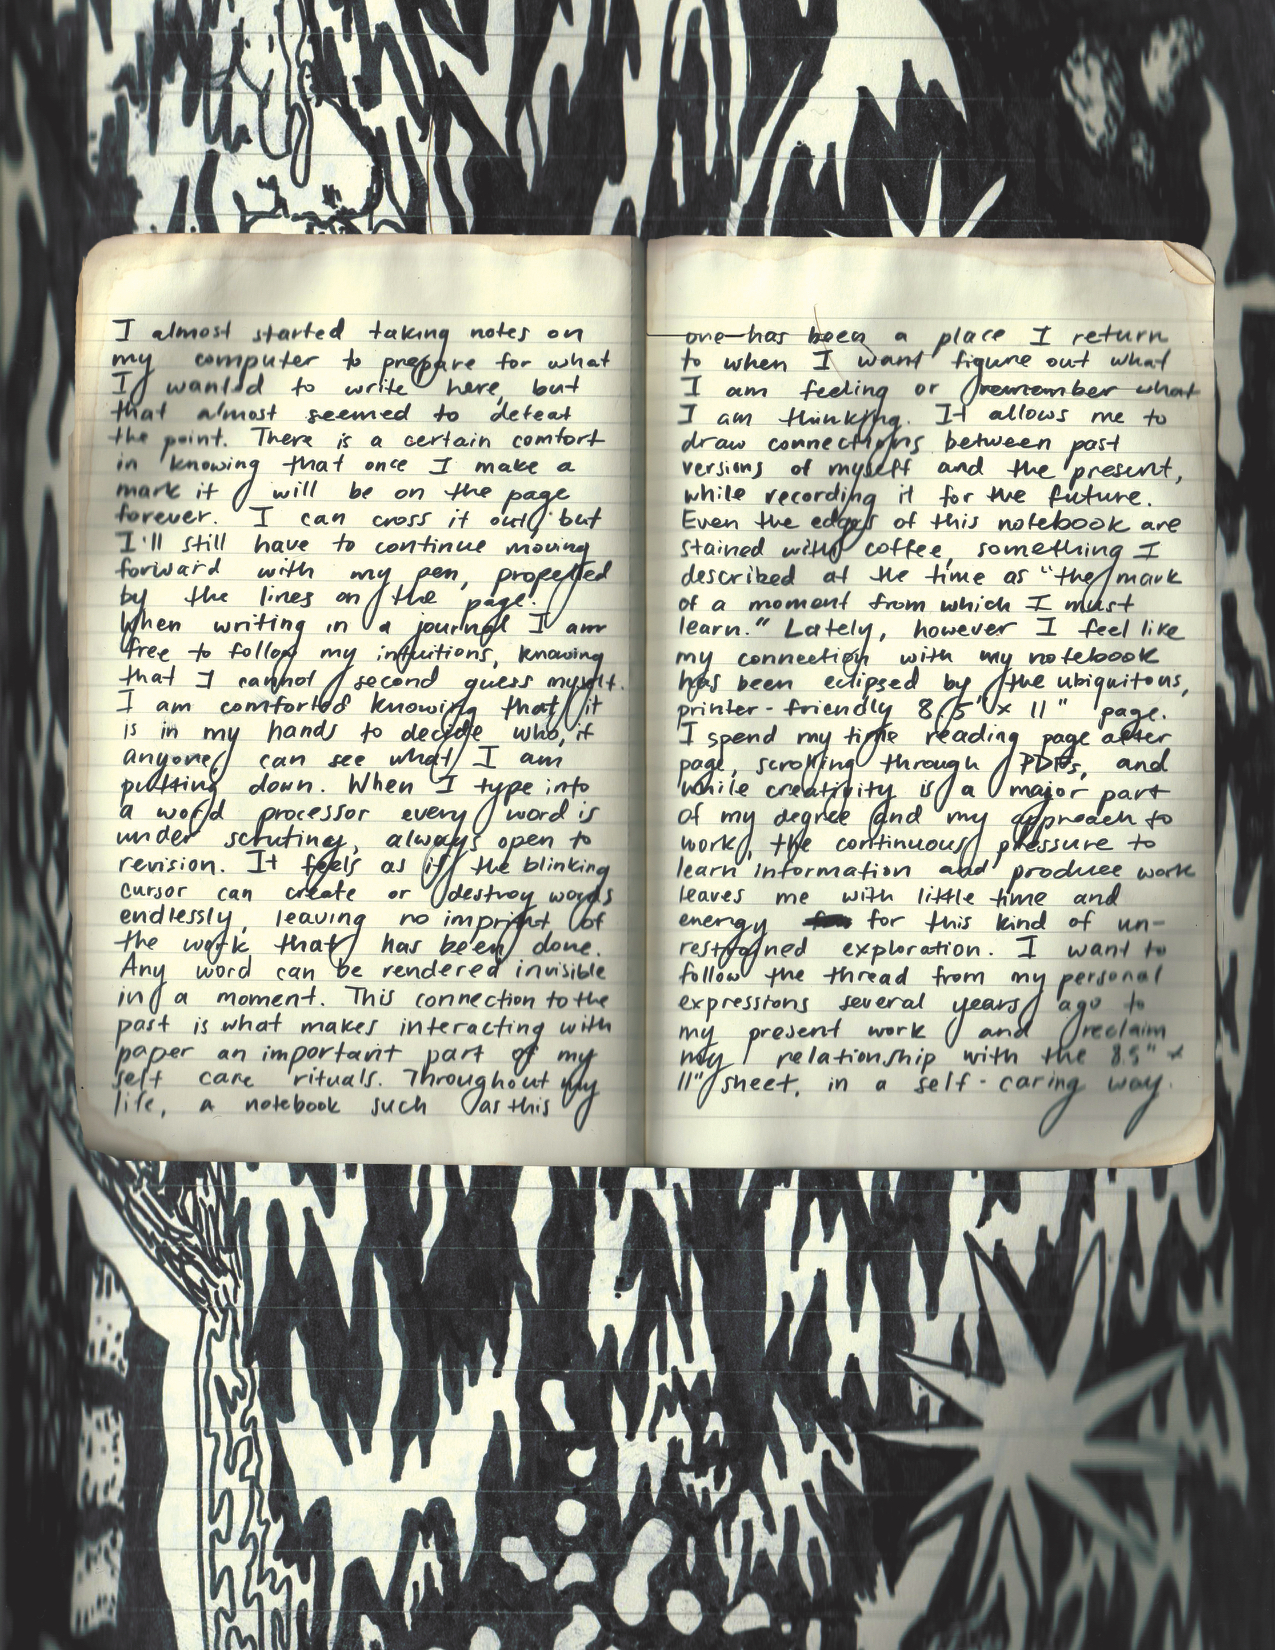 I almost started taking notes on
my computer to prepare for what
I wanted to write here, but
that almost seemed to defeat
the point. There is a certain comfort
in knowing that once I make a
mark it will be on the page
forever. I can cross it out, but
I'll still have to continue moving
forward with my pen, propelled
by the lines on the page.
When writing in a journal I am
free to follow my intuitions, knowing
that I cannot second guess myself.
I am comforted knowing that it
is in my hands to decide who, if
anyone, can see what I am
putting down. When I type into
a word processor every word is
under scrutiney, always open to
revision. It feels as if the blinking
cursor can create or destroy words
endlessly, leaving no imprint of
the work that has been done.
Any word can be rendered invisible
in a moment. This connection to the
past is what makes interacting with
paper an important part of my
self care rituals. Throughout my
life, a notebook such as this
one has been a place I return
to when I want figure out what
I am feeling or remember what
I am thinking. It allows me to
draw connections between past
versions of myself and the present,
while recording it for the future.
Even the edges of this notebook are
stained with coffee, something I
described at the time as "the mark
of a moment from which I must
learn." Lately, however I feel like
my connection with my notebook
has been eclipsed by the ubiquitous,
printer-friendly 8.5" x 11" page.
I spend my time reading page after
page, scrolling through PDFs, and
while creativity is a major part
of my degree and my approach to
work, the continuous pressure to
learn information and produce work
leaves me with little time and
energy for this kind of un-
restrained exploration. I want to
follow the thread from my personal
expressions several years ago to
my present work and reclaim
my relationship with the 8.5" x
11" sheet, in a self-caring way.